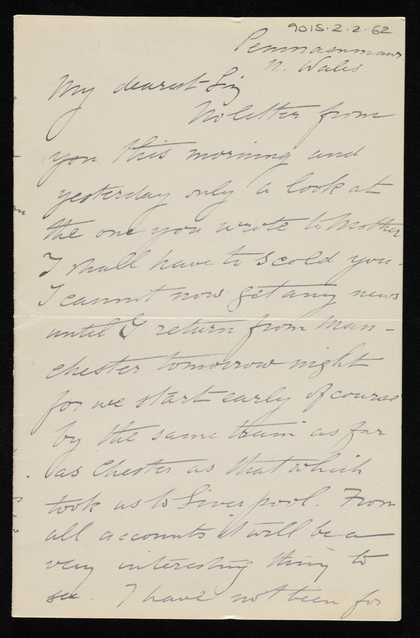 9015.2.2.62
Penmaenmawr
N. Wales
My dearest Sig
No letter from
you this morning and
yesterday only a look at
the one you wrote to Mother
I shall have to scold you.
I cannot now get any news
until I return from Man-
chester tomorrow night
for we start early of course
by the same train as far
as Chester as that which
took us to Liverpool. From
all accounts it will be a
very interesting thing to
see. I have not been for